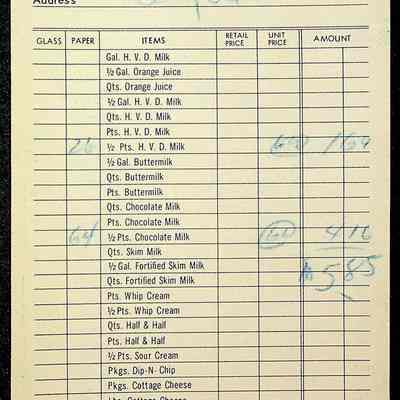 Address
GLASS PAPER ITEMS RETAIL PRICE UNIT PRICE AMOUNT
Gal. H. V. D. Milk
½ Gal. Orange Juice
Qts. Orange Juice
½ Gal. H. V. D. Milk
Qts. H. V. D. Milk
Pts. H. V. D. Milk
26 ½ Pts. H. V. D. Milk 169
½ Gal. Buttermilk
Qts. Buttermilk
Pts. Buttermilk
Qts. Chocolate Milk
Pts. Chocolate Milk
64 ½ Pts. Chocolate Milk 416
Qts. Skim Milk
½ Gal. Fortified Skim Milk 585
Qts. Fortified Skim Milk
Pts. Whip Cream
½ Pts. Whip Cream
Qts. Half & Half
Pts. Half & Half
½ Pts. Sour Cream
Pkgs. Dip-N-Chip
Pkgs. Cottage Cheese
Lbs. Cottage Cheese